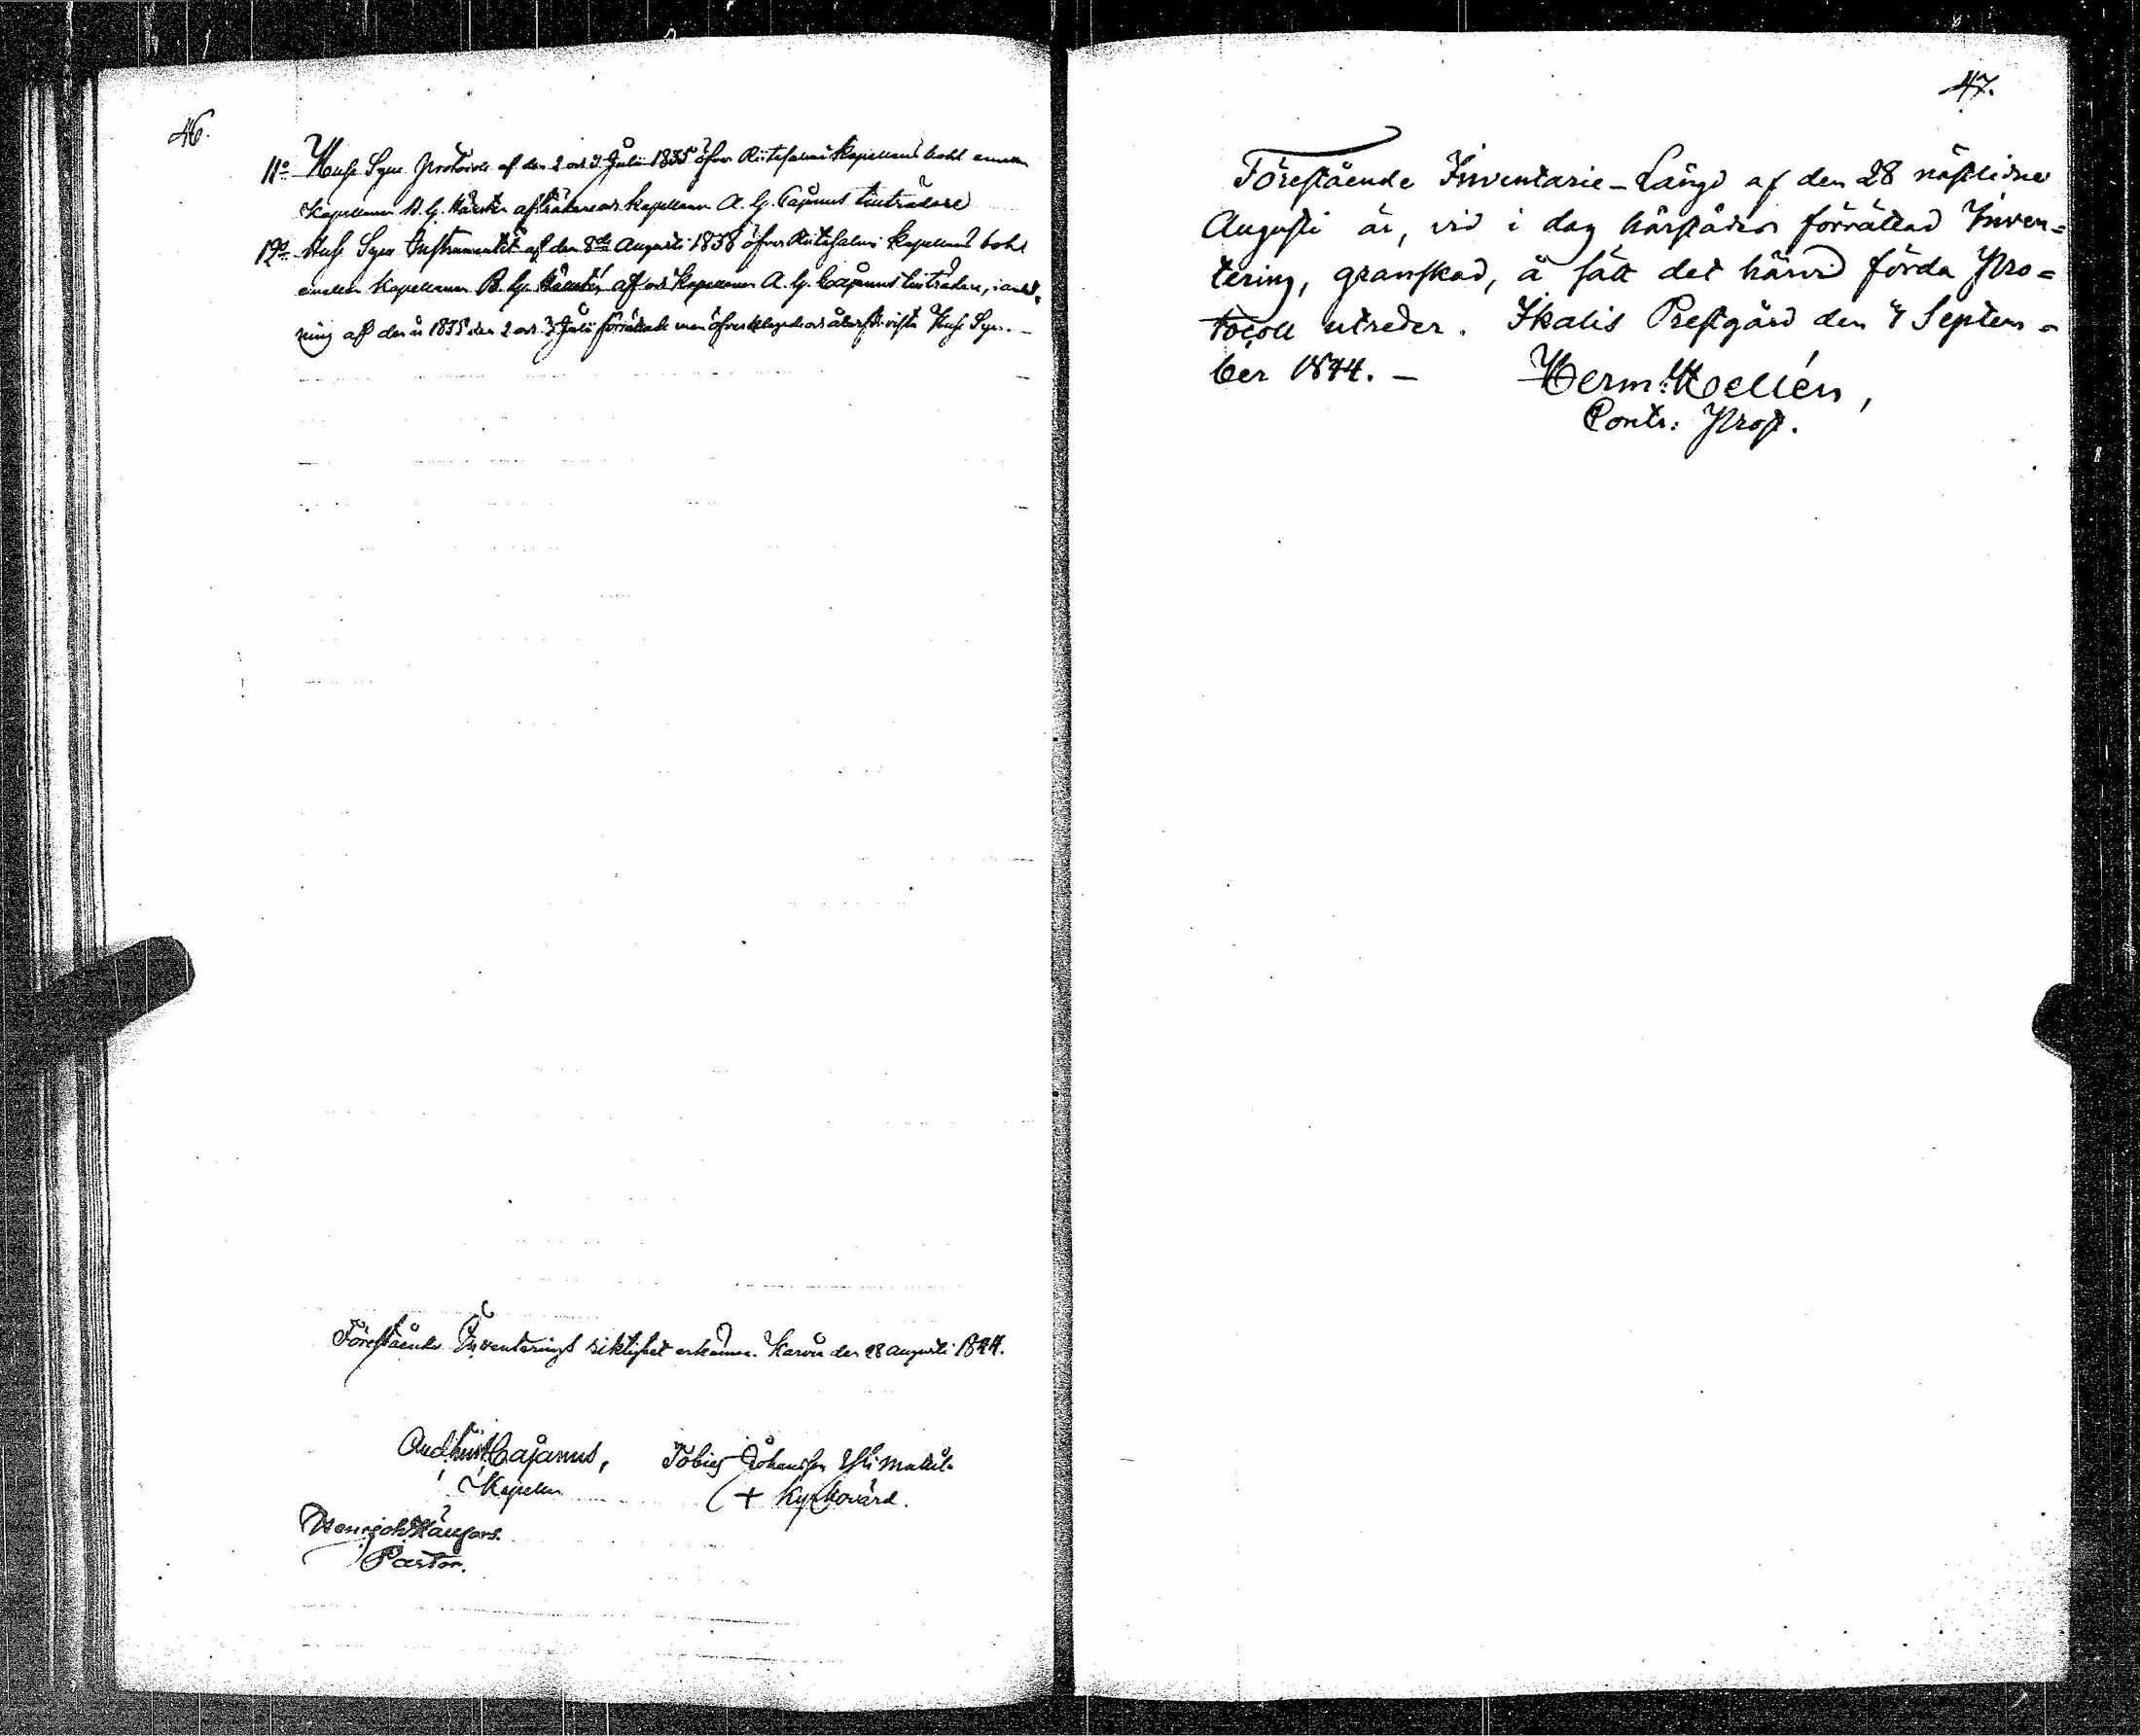 46.
11o Huse Syne Protocoll af den 2 och 3 Julii 1835 öfver Riitesalmi Kapellans bohl emellan
Kapellanen B. G. afträdare och Kapellanen A. G. Cajanus tillträdare
12o Huse Syne Instrumentet af den 8de Augusti 1838 öfver Riitesalmi Kapellans bohl
emellan Kapellanen B. G. af och Kapellanen A. G. Cajanus tillträdare, i anled-
ning af den år 1835 den 2 och 3 Julii förrättade men öfverklagade och återförvista Huse Syn. —
Förestående Inventerings riktighet erkännes. Karvia den 28 Augusti 1844.
And. Gust. Cajanus, Tobias Johansson
Kapellan + Kyrkovärd.
Henr. Joh.
Pastor.
47.
Förestående Inventarie-Längd af den 28 nästlidne
Augusti är, vid i dag härstädes förrättad Inven=
tering, granskad, å sätt det härvid förda Pro=
tocoll utreder. Ikalis Prestgård den 4 Septem=
ber 1844. — Herm: Hellén,
Contr: Prost.